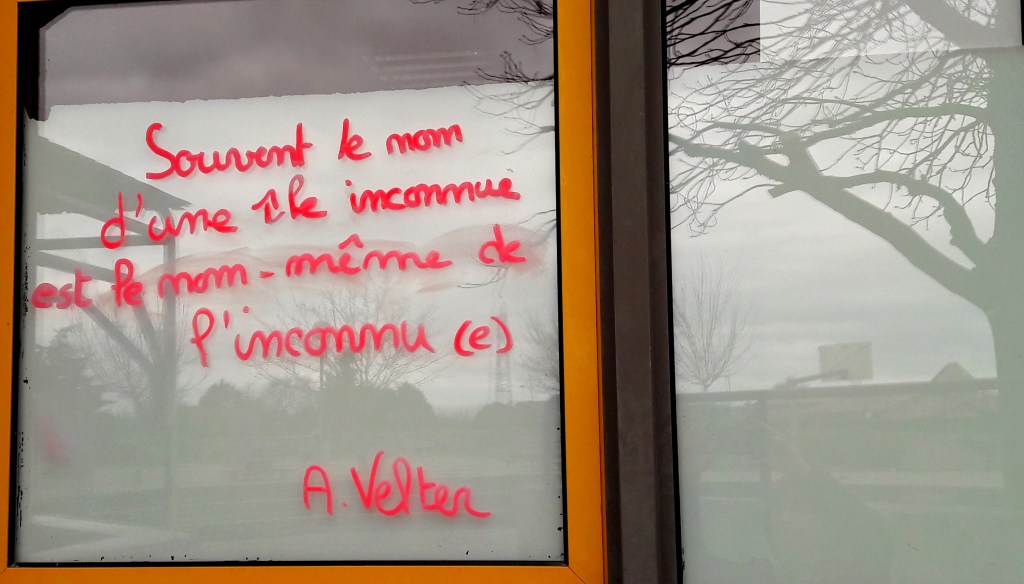 Souvent le nom
d'une île inconnue
est le nom-même de
l'inconnu (e)
A. Velter